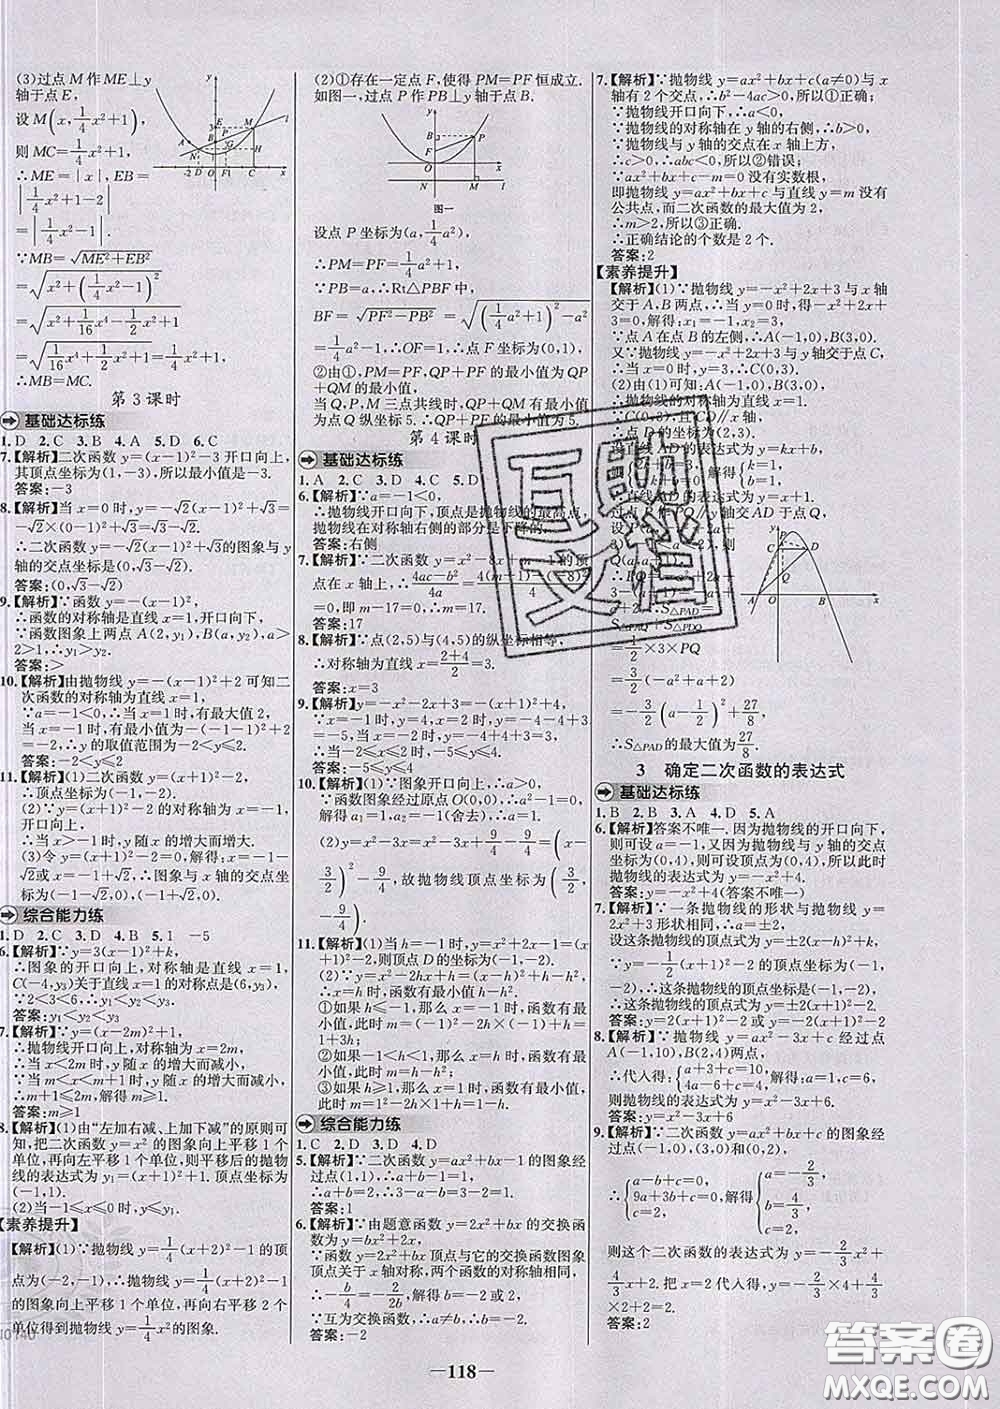 (3)过点 M 作 ME⊥y
轴于点 E,
设 M(x, 1/4x²+1),
则 MC=1/4x²+1,
∴ME=|x|, EB=
|1/4x²+1-2|
=|1/4x²-1|.
∵MB=√(ME²+EB²)
=√(x²+(1/4x²-1)²)
=√(x²+1/16x⁴-1/2x²+1)
=√(1/16x⁴+1/2x²+1)=1/4x²+1.
∴MB=MC.
第 3 课时
基础达标练
1. D 2. C 3. B 4. A 5. D 6. C
7.【解析】二次函数 y=(x-1)²-3 开口向上,
其顶点坐标为(1,-3),所以最小值是-3.
答案:-3
8.【解析】当 x=0 时,y=-√2(x-1)²+√3=
-√2×(0-1)²+√3=√3-√2.
∴二次函数 y=-√2(x-1)²+√3的图象与 y
轴的交点坐标是(0,√3-√2).
答案:(0,√3-√2)
9.【解析】∵函数 y=-(x-1)²,
∴函数的对称轴是直线 x=1,开口向下.
∵函数图象上两点 A(2,y₁),B(a,y₂),a>
2>1,∴y₁>y₂.
答案:>
10.【解析】由抛物线 y=-(x-1)²+2 可知二
次函数的对称轴为直线 x=1,
∵a=-1<0,∴x=1 时,有最大值 2,
当 x=-1 时,有最小值 y=-(-1-1)²+2
=-2,∴y 的取值范围为-2<y≤2.
答案:-2<y≤2
11.【解析】(1)二次函数 y=(x+1)²-2,
∴顶点坐标为(-1,-2).
(2)∵y=(x+1)²-2 的对称轴为 x=-1,
开口向上.
∴当 x>-1 时,y 随 x 的增大而增大.
(3)令(x+1)²-2=0,解得:x=-1-
√2或 x=-1+√2,∴图象与 x 轴的交点坐
标为(-1-√2,0),(-1+√2,0).
综合能力练
1. D 2. C 3. D 4. B 5. 1 -5
6.【解析】∵y=3(x-1)²+k,
∴图象的开口向上,对称轴是直线 x=1,
C(-4,y₃)关于直线 x=1 的对称点是(6,y₃),
∵2<3<6,∴y₁<y₂<y₃.
答案:y₁<y₂<y₃
7.【解析】∵y=(x-2m)²+1,
∴抛物线开口向上,对称轴为 x=2m,
∴当 x<2m 时,y 随 x 的增大而减小.
∵当 x<m+1 时,y 随 x 的增大而减小,
∴m+1≤2m,解得 m≥1.
答案:m≥1
8.【解析】(1)由“左加右减、上加下减”的原则可
知,把二次函数 y=x² 的图象向上平移 1 个
单位,再向左平移 1 个单位,则平移后的抛物
线的表达式为 y₁=(x+1)²+1. 顶点坐标为
(-1,1).
(2)当-1≤x≤0 时,y≤y₁.
【素养提升】
【解析】(1)∵抛物线 y=1/4(x+2)²-1 的顶
点为(-2,-1),∴抛物线 y=1/4(x+2)²-1
的图象向上平移 1 个单位,再向右平移 2 个
单位得到抛物线 y=1/4x² 的图象.
(2)①存在一定点 F,使得 PM=PF 恒成立.
如图一,过点 P 作 PB⊥y 轴于点 B.
图一
设点 P 坐标为(a, 1/4a²),
∴PM=PF=1/4a²+1,
∵PB=a,∴Rt△PBF 中,
BF=√(PF²-PB²)=√((1/4a²+1)²-a²)
=1/4a²-1,∴OF=1,∴点 F 坐标为(0,1).
②由①,PM=PF,QP+PF 的最小值为 QP
+QM 的最小值,
当 Q,P,M 三点共线时,QP+PF 的最小值为
点 Q 纵坐标 5. ∴QP+PF 的最小值为 5.
第 4 课时
基础达标练
1. A 2. D 3. C 4. C 5. D
6.【解析】∵a=-1<0,
∴抛物线开口向下,顶点是抛物线的最高点,
抛物线在对称轴右侧的部分是下降的.
答案:右侧
7.【解析】∵二次函数 y=x²-8x+m-1 的顶
点在 x 轴上,∴(4ac-b²)/4a=(4(m-1)-(-8)²)/4=
0,即 4m-68=0,∴m=17.
答案:17
8.【解析】∵点(2,5)与(4,5)的纵坐标相等,
∴对称轴为直线 x=(2+4)/2=3.
答案:x=3
9.【解析】y=-x²-2x+3=-(x+1)²+4,
∵x=-1 时,y=4,x=2 时,y=-4-4+3=
-5,当 x=-2 时,y=-4+4+3=3,
∴当-2≤x≤2 时,-5≤y≤4.
答案:-5≤y≤4
10.【解析】(1)∵图象开口向上,∴a>0,
∵函数图象经过原点 O(0,0),∴a²-1=0,
解得 a₁=1,a₂=-1(舍去),∴a=1.
(2)y=x²-3x=x²-3x+9/4-9/4=(x-
3/2)²-9/4,故抛物线顶点坐标为(3/2,
-9/4).
11.【解析】(1)当 h=-1 时,y=x²+2x-1=(x
+1)²-2,则顶点 D 的坐标为(-1,-2).
(2)∵y=x²-2hx+h=(x-h)²+h-h²,
∴x=h 时,函数有最小值 h-h².
①如果 h≤-1,那么 x=-1 时,函数有最
小值,此时 m=(-1)²-2h×(-1)+h=
1+3h;
②如果-1<h<1,那么 x=h 时,函数有最
小值,此时 m=h-h²;
③如果 h≥1,那么 x=1 时,函数有最小值,
此时 m=1²-2h×1+h=1-h.
综合能力练
1. C 2. D 3. D 4. D
5.【解析】∵二次函数 y=ax²+bx-1 的图象经
过点(1,1),∴a+b-1=1,
∴a+b=2,∴3-a-b=3-2=1.
答案:1
6.【解析】∵由题意函数 y=2x²+bx 的交换函
数为 y=bx²+2x.
∴y=2x²+bx 顶点与它的交换函数图象
顶点关于 x 轴对称,两个函数的对称轴相同,
∴-b/4=-2/2b,解得 b=-2 或 2,
∵互为交换函数,∴b=-2.
答案:-2
7.【解析】∵抛物线 y=ax²+bx+c(a≠0)与 x
轴有 2 个交点,∴b²-4ac>0,所以①正确;
∵抛物线开口向下,∴a<0,
∵抛物线的对称轴在 y 轴的右侧,∴b>0,
∵抛物线与 y 轴的交点在 x 轴上方,
∴c>0,∴abc<0,所以②错误;
∵ax²+bx+c-m=0 没有实数根,
即抛物线 y=ax²+bx+c 与直线 y=m 没有
公共点,而二次函数的最大值为 2,
∴m>2,所以③正确.
∴正确结论的个数是 2 个.
答案:2
【素养提升】
【解析】(1)∵抛物线 y=-x²+2x+3 与 x 轴
交于 A,B 两点,∴当 y=0 时,即-x²+2x+
3=0,解得:x₁=-1,x₂=3,
∵点 A 在点 B 的左侧,∴A(-1,0),B(3,0).
又∵抛物线 y=-x²+2x+3 与 y 轴交于点 C,
∴当 x=0 时,y=3,∴C(0,3).
(2)由(1)可知:A(-1,0),B(3,0),
∴抛物线的对称轴为直线 x=1,
∵C(0,3),且点 D ∥x 轴,
y=kx+b,
k=1,
b=1,
轴交 AD 于点 Q,
S△PAD=
=1/2×3×PQ
=3/2(-a²+a+2)
=-3/2(a-1/2)²+27/8,
∴S△PAD的最大值为27/8.
3 确定二次函数的表达式
基础达标练
1. B 2. B 3. A 4. D 5. A
6.【解析】答案不唯一. 因为抛物线的开口向下,
则可设 a=-1,又因为抛物线与 y 轴的交点
坐标为(0,4),则可设顶点为(0,4),所以此时
抛物线的表达式为 y=-x²+4.
答案:y=-x²+4(答案不唯一)
7.【解析】∵一条抛物线的形状与抛物线 y=
2x² 形状相同,∴a=±2,
设这条抛物线的顶点式为 y=±2(x-h)²+k,
∴这条抛物线的顶点式为 y=±2(x+1)²-2.
答案:y=2(x+1)²-2 或 y=-2(x+1)²-2
8.【解析】∵抛物线 y=ax²-3x+c 经过点
A(-1,10),B(2,4)两点,
∴代入得:{a+3+c=10, 4a-6+c=4,解得:a=1,c=6,
则抛物线的表达式为:y=x²-3x+6
答案:y=x²-3x+6
9.【解析】∵二次函数 y=ax²+bx+c 的图象经
过点(-1,0),(3,0)和(0,2),
∴{a-b+c=0, 9a+3b+c=0, c=2, 解得{a=-2/3, b=4/3, c=2,
则这个二次函数的表达式为 y=-2/3x²+
4/3x+2,把 x=2 代入得,y=-2/3×4+4/3
×2+2=2.
答案:2
—118—
答案圈
MXQE.COM